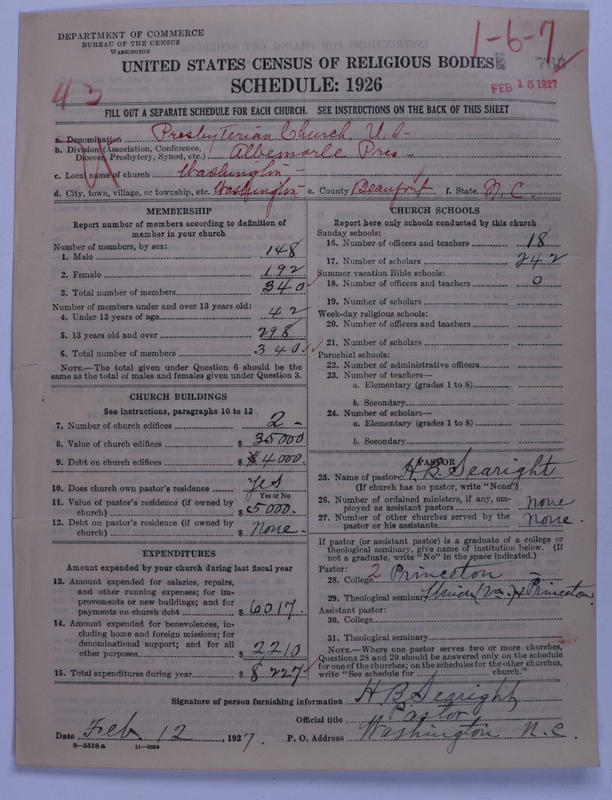 DEPARTMENT OF COMMERCE
BUREAU OF THE CENSUS
WASHINGTON
1-6-7
43
UNITED STATES CENSUS OF RELIGIOUS BODIES
SCHEDULE: 1926
FEB 15 1927
FILL OUT A SEPARATE SCHEDULE FOR EACH CHURCH. SEE INSTRUCTIONS ON THE BACK OF THIS SHEET
a. Denomination Presbyterian Church, U.S.
b. Division (Association, Conference, Diocese, Presbytery, Synod, etc.) Albemarle Pres.
c. Local name of church Washington
d. City, town, village, or township, etc. Washington e. County Beaufort f. State N.C.
MEMBERSHIP
Report number of members according to definition of
member in your church
Number of members, by sex:
1. Male 148
2. Female 192
3. Total number of members 340
Number of members under and over 13 years old:
4. Under 13 years of age 42
5. 13 years old and over 298
6. Total number of members 340
NOTE.—The total given under Question 6 should be
same as the total of males and females given under Question 3.
CHURCH BUILDINGS
See instructions, paragraphs 10 to 12
7. Number of church edifices 2
8. Value of church edifices $ 35000
9. Debt on church edifices $ 4000.
10. Does church own pastor's residence yes
Yes or No
11. Value of pastor's residence (if owned by
church) $ 5000.
12. Debt on pastor's residence (if owned by
church) $ None
EXPENDITURES
Amount expended by your church during last fiscal year
13. Amount expended for salaries, repairs,
and other running expenses; for im-
provements or new buildings; and for
payments on church debt $ 6017.
14. Amount expended for benevolences, in-
cluding home and foreign missions; for
denominational support; and for all
other purposes $ 2210
15. Total expenditures during year $ 8227
CHURCH SCHOOLS
Report here only schools conducted by this church
Sunday schools:
16. Number of officers and teachers 18
17. Number of scholars 242
Summer vacation Bible schools:
18. Number of officers and teachers 0
19. Number of scholars
Week-day religious schools:
20. Number of officers and teachers
21. Number of scholars
Parochial schools:
22. Number of administrative officers
23. Number of teachers—
a. Elementary (grades 1 to 8)
b. Secondary
24. Number of scholars—
a. Elementary (grades 1 to 8)
b. Secondary
PASTOR
25. Name of pastor H B Searight
(If church has no pastor, write "None")
26. Number of ordained ministers, if any, em-
ployed as assistant pastors none
27. Number of other churches served by the
pastor or his assistants none.
If pastor (or assistant pastor) is a graduate of a college or
theological seminary, give name of institution below. (If
not a graduate, write "No" in the space indicated.)
Pastor:
28. College 2 Princeton
29. Theological seminary Union (Va) & Princeton.
Assistant pastor:
30. College
31. Theological seminary
NOTE.—Where one pastor serves two or more churches,
Questions 28 and 29 should be answered only on the schedule
for one of the churches; on the schedules for the other churches,
write "See schedule for church."
Signature of person furnishing information H B Searight
Official title Pastor
Date Feb. 12, 1927. P. O. Address Washington N.C.
8—5518 a 11—9034